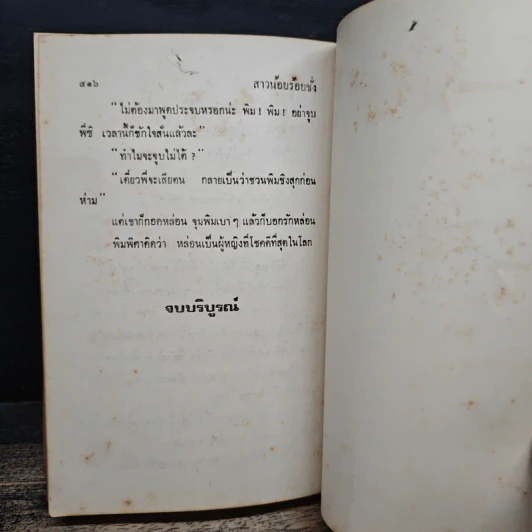 ๔๑๖ สาวน้อยร้อยชั่ง
"ไม่ต้องมาพูดประจบหรอกน่ะ พิม! พิม! อย่าจูบ
พี่ซิ เวลานี้ก็ชักใจสั่นแล้วละ"
"ทำไมจะจูบไม่ได้ ?"
"เดี๋ยวพี่จะเสียคน กลายเป็นว่าชวนพิมชิงสุกก่อน
ห่าม"
แต่เขาก็กอดหล่อน จุมพิมเบาๆ แล้วก็บอกรักหล่อน
พิมพิศาคิดว่า หล่อนเป็นผู้หญิงที่โชคดีที่สุดในโลก
จบบริบูรณ์